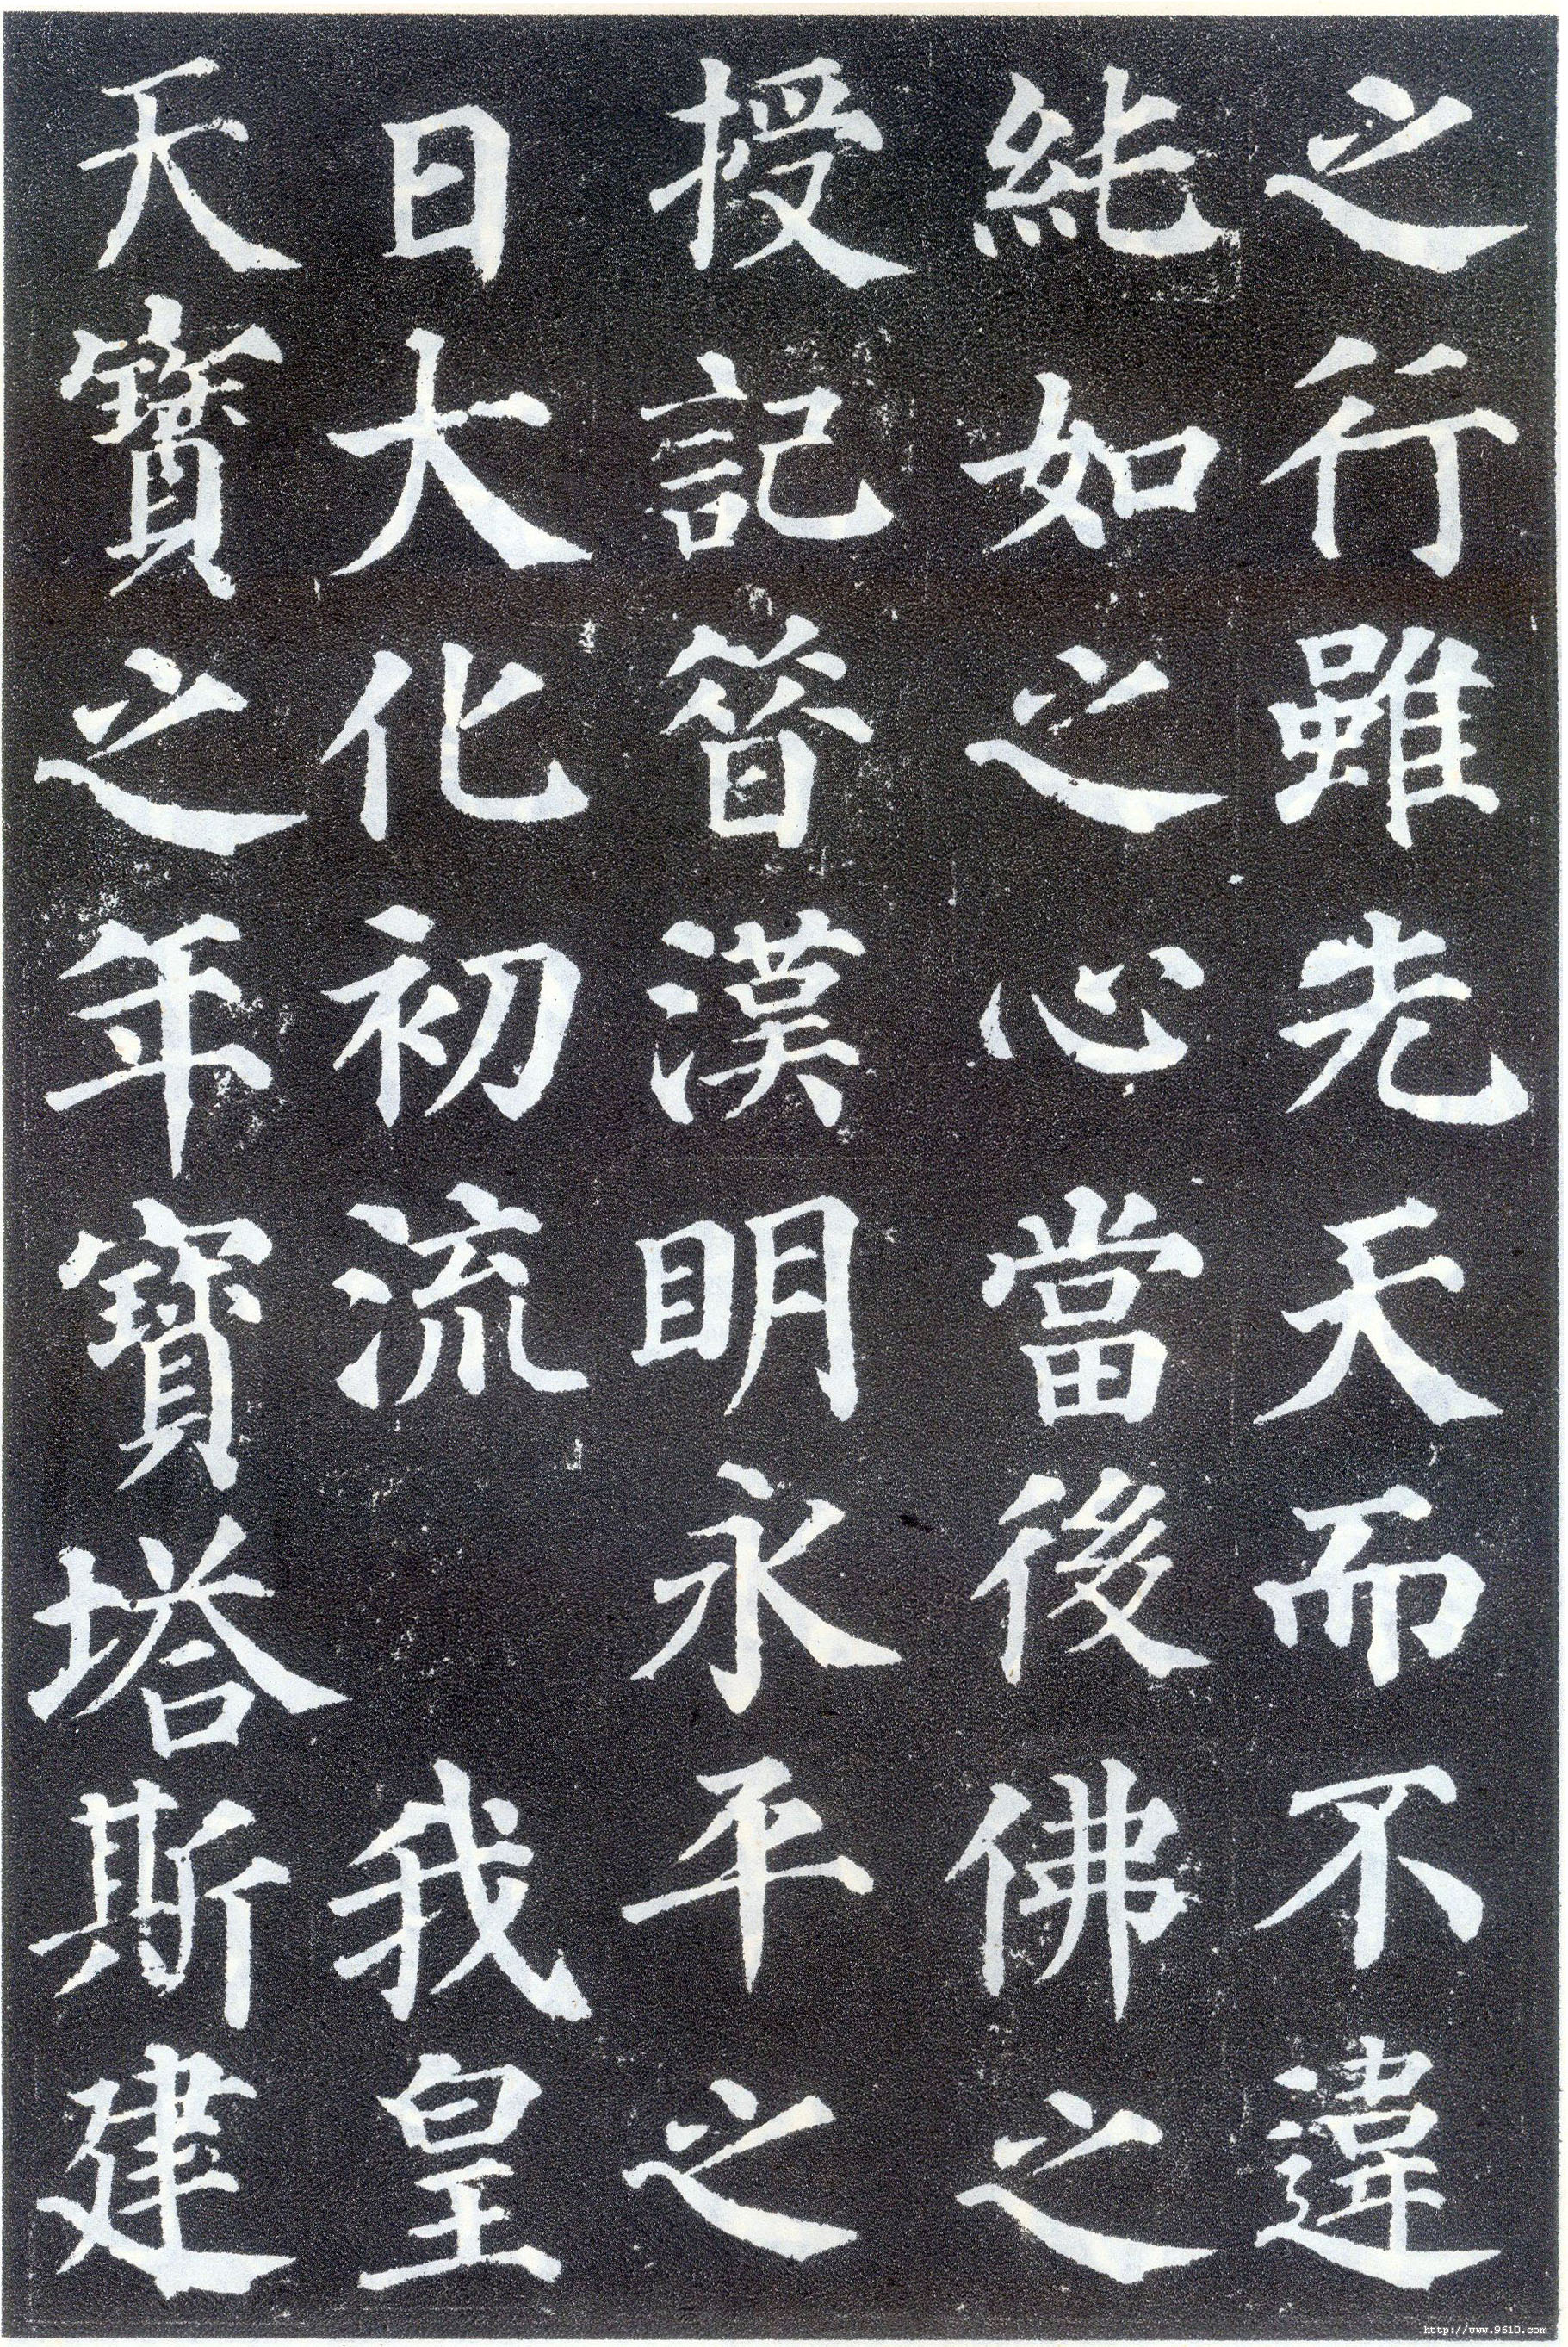 之行雖先天而不違
純如之心當後佛之
授記昔漢明永平之
日大化初流　我皇
天寶之年寶塔斯建
http://www.9610.com